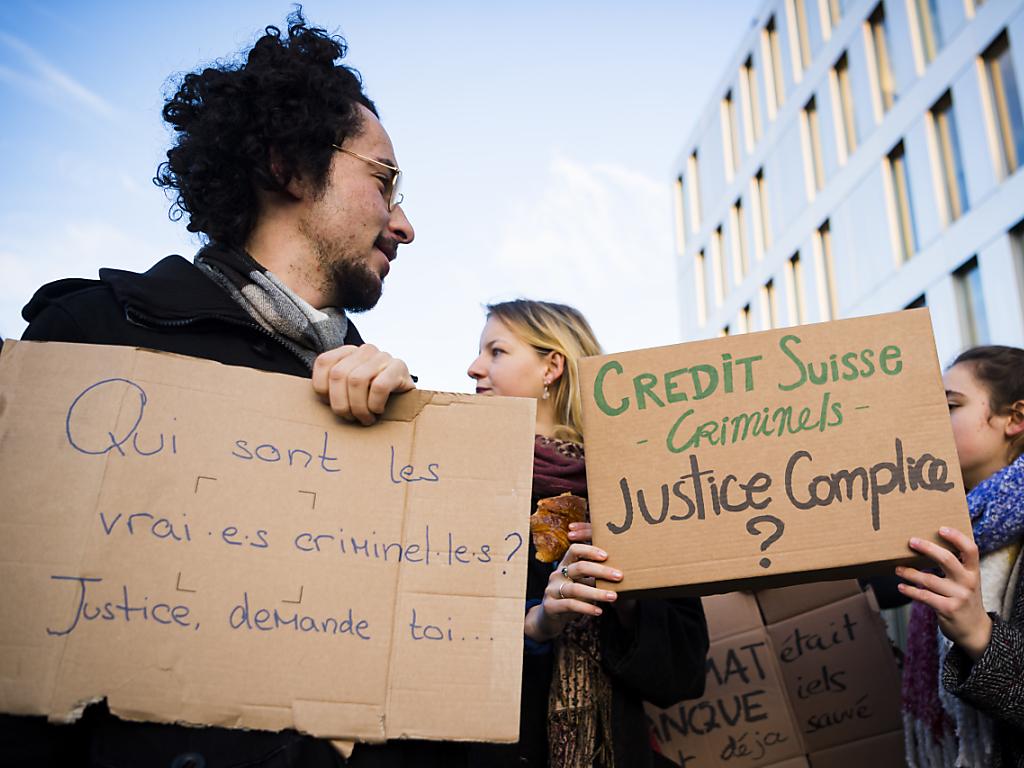 Qui sont les
vrai·e·s criminel·le·s?
Justice, demande toi...
CREDIT SUISSE
- CRIMINELS -
JUSTICE COMPLICE
?
MAT
NQUE
déjà
était
iels
sauvé